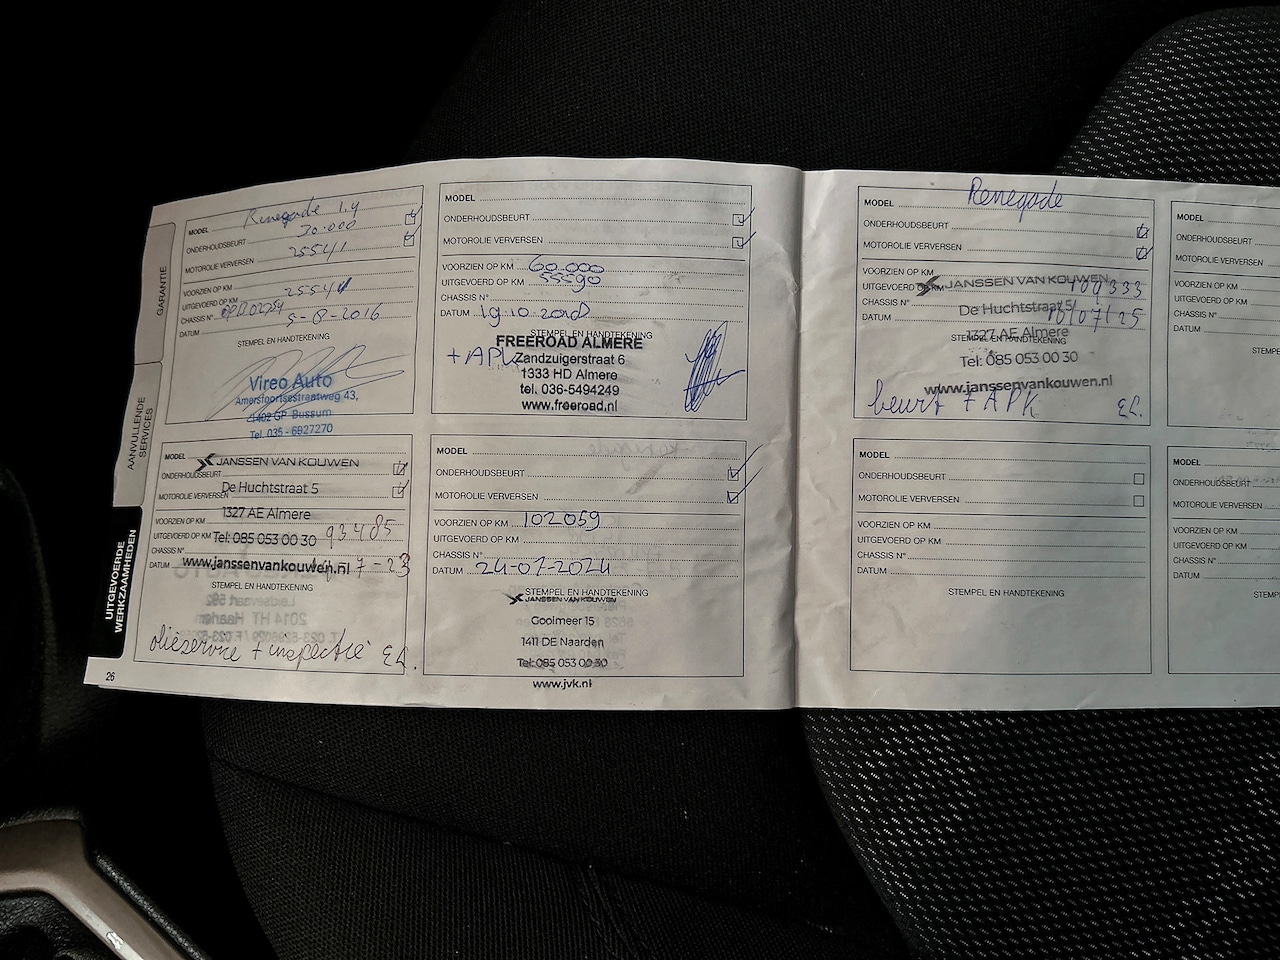 GARANTIE
AANVULLENDE
SERVICES
UITGEVOERDE
WERKZAAMHEDEN
MODEL Renegade 1.4
ONDERHOUDSBEURT 30.000
MOTOROLIE VERVERSEN 25541
VOORZIEN OP KM
UITGEVOERD OP KM 25541
CHASSIS N°
DATUM 5-8-2016
STEMPEL EN HANDTEKENING
Vireo Auto
Amersfoortsestraatweg 43,
1402 GP Bussum
Tel. 035 - 6927270
MODEL
ONDERHOUDSBEURT
MOTOROLIE VERVERSEN
VOORZIEN OP KM 60.000
UITGEVOERD OP KM 55590
CHASSIS N°
DATUM 19.10.2018
STEMPEL EN HANDTEKENING
+APK
FREEROAD ALMERE
Zandzuigerstraat 6
1333 HD Almere
tel. 036-5494249
www.freeroad.nl
MODEL JANSSEN VAN KOUWEN
ONDERHOUDSBEURT
De Huchtstraat 5
MOTOROLIE VERVERSEN
1327 AE Almere
VOORZIEN OP KM
UITGEVOERD OP KM Tel: 085 053 00 30 93485
CHASSIS N°
DATUM www.janssenvankouwen.nl 7-23
STEMPEL EN HANDTEKENING
olieservice + inspectie
26
MODEL
ONDERHOUDSBEURT
MOTOROLIE VERVERSEN
VOORZIEN OP KM 102059
UITGEVOERD OP KM
CHASSIS N°
DATUM 24-07-2024
STEMPEL EN HANDTEKENING
JANSSEN VAN KOUWEN
Gooimeer 15
1411 DE Naarden
Tel: 085 053 00 30
www.jvk.nl
MODEL Renegade
ONDERHOUDSBEURT
MOTOROLIE VERVERSEN
VOORZIEN OP KM
JANSSEN VAN KOUWEN
UITGEVOERD OP KM
CHASSIS N° De Huchtstraat 5
DATUM 07/25
1327 AE Almere
STEMPEL EN HANDTEKENING
Tel: 085 053 00 30
www.janssenvankouwen.nl
beurt + APK
MODEL
ONDERHOUDSBEURT
MOTOROLIE VERVERSEN
VOORZIEN OP KM
UITGEVOERD OP KM
CHASSIS N°
DATUM
STEMPEL EN HANDTEKENING
MODEL
ONDERHOUDSBEURT
MOTOROLIE VERVERSEN
VOORZIEN OP KM
UITGEVOERD OP KM
CHASSIS N°
DATUM
MODEL
ONDERHOUDSBEURT
MOTOROLIE VERVERSEN
VOORZIEN OP KM
UITGEVOERD OP KM
CHASSIS N°
DATUM